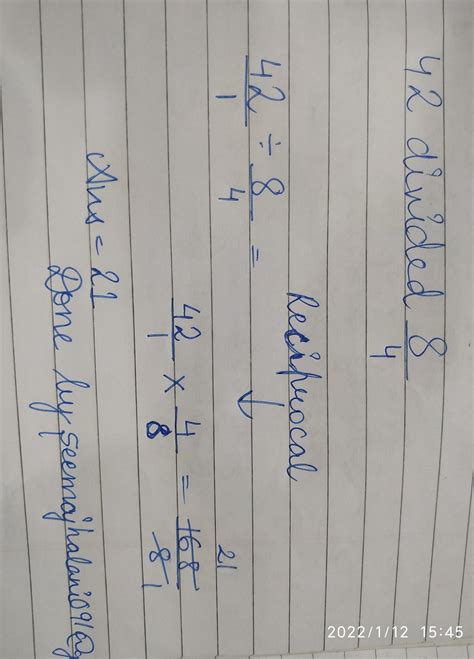 42 divided 8/4
42/1 ÷ 8/4 =
Reciprocal
↓
42/1 × 4/8 = 168/8 21 1
Ans = 21
Done by
2022/1/12 15:45